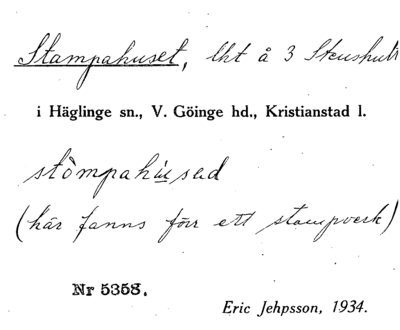 Stampahuset, lht å 3 Stenshult
i Häglinge sn., V. Göinge hd., Kristianstad l.
stòmpahúsed
(här fanns förr ett stampverk)
Nr 5358.
Eric Jehpsson, 1934.